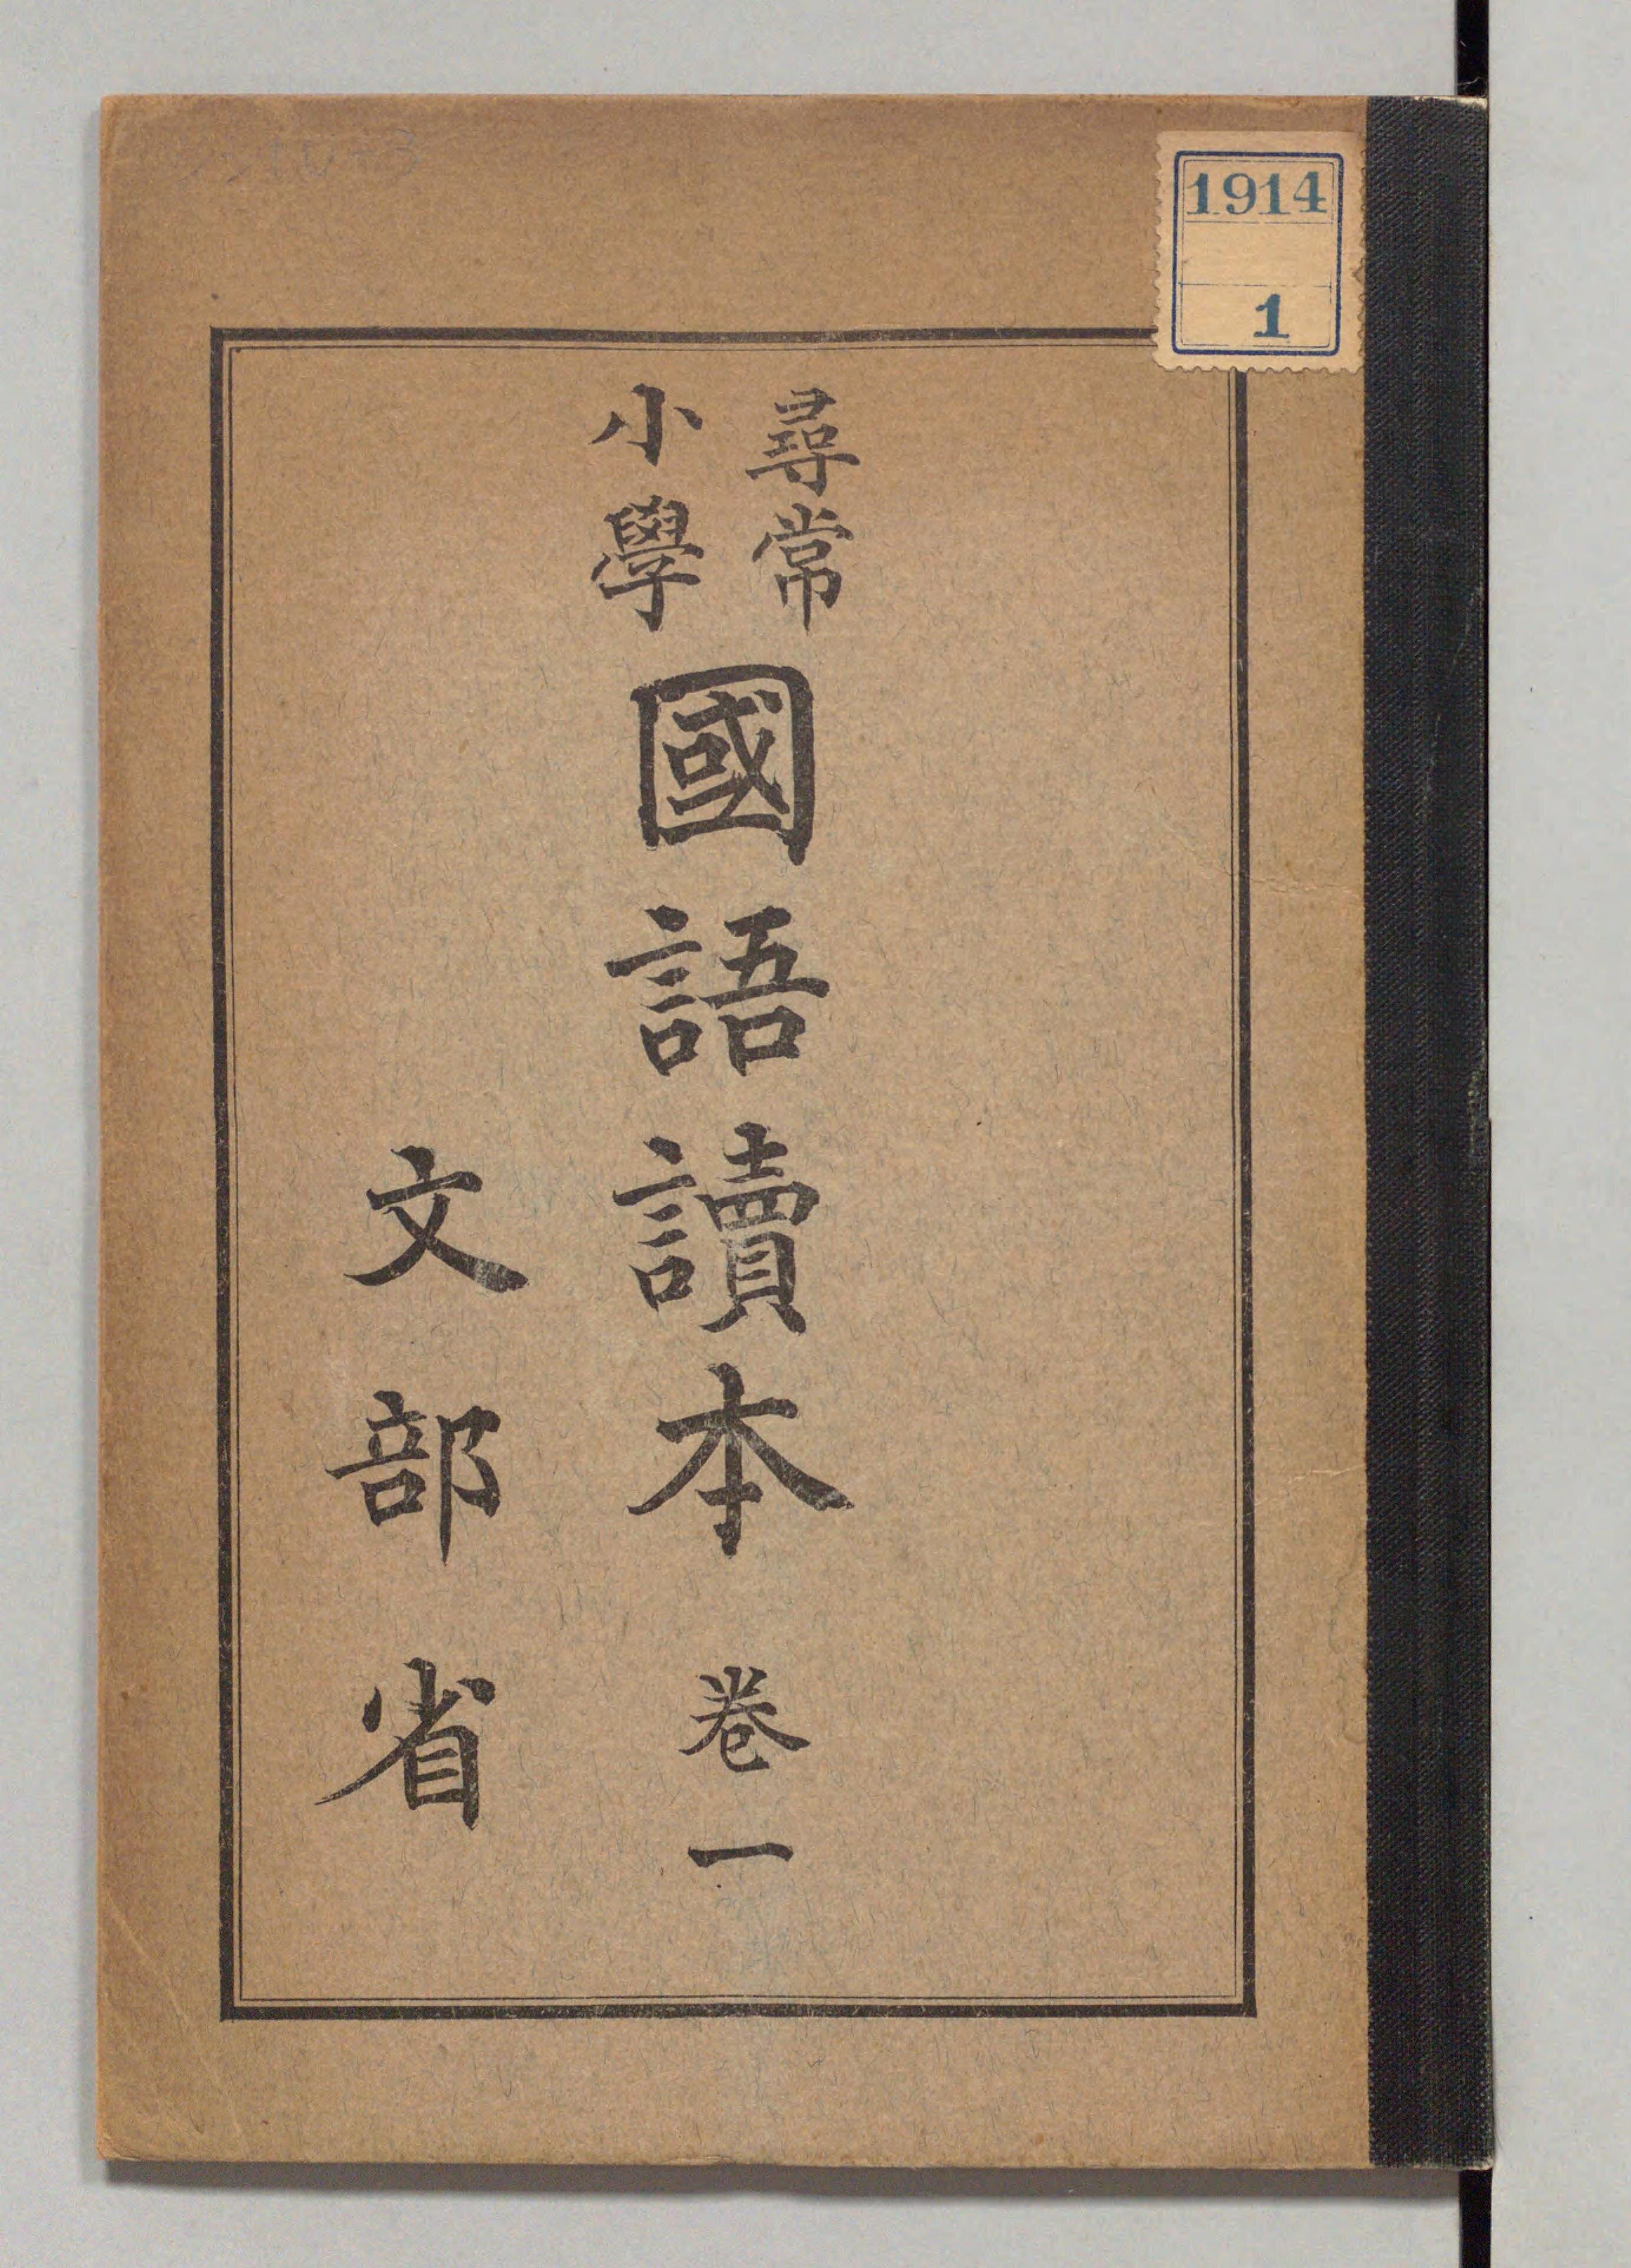 1914
1
尋常
小學
國語讀本 卷一
文部省